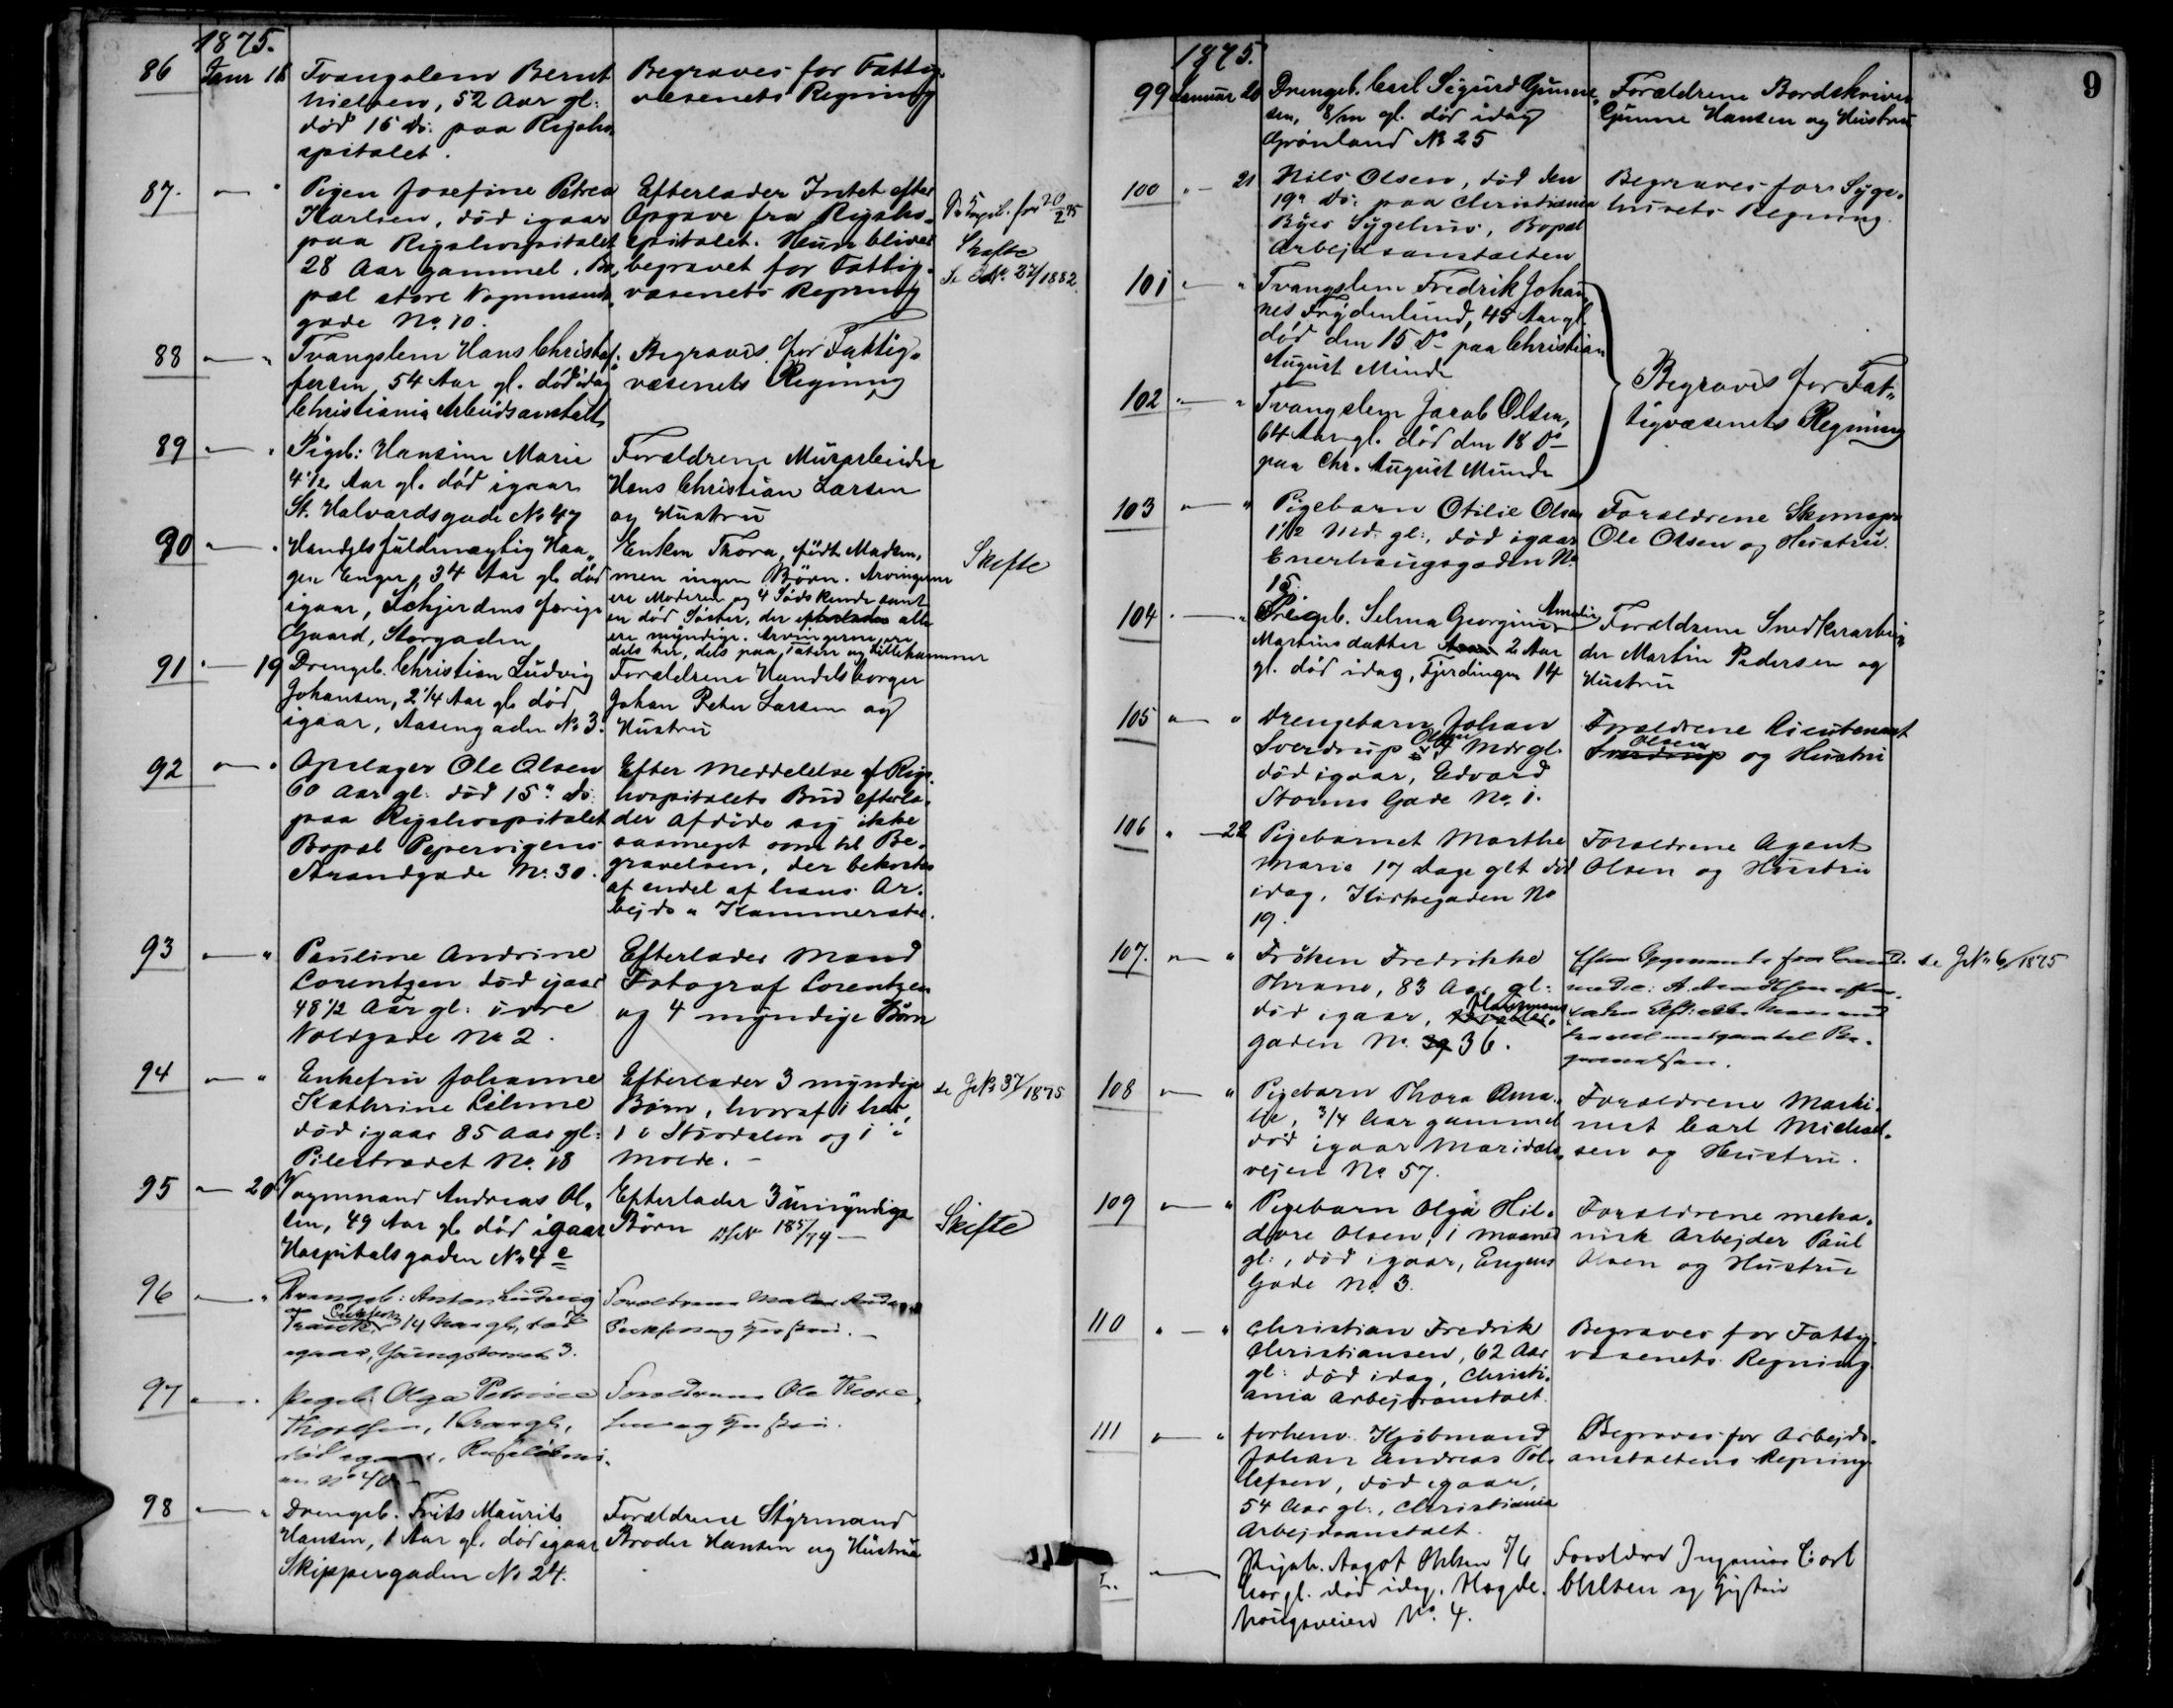 1875.
86 Janr 18 Tvangslem Bernt Begraves for Fattig-
Nielsen, 52 Aar gl: væsenets Regning
død 15 ds: paa Rigsho
spitalet.
87. — " Pigen Josefine Petrea Efterlader Intet efter
Karlsen, død igaar Opgave fra Rigsho-
paa Rigshospitalet spitalet. Hun bliver Skifte
28 Aar gammel, Bo- begravet for Fattig-
pæl store Vognmands væsenets Regning 27/1882
gade No. 10.
88 — " Tvangslem Hans Christof- Begraves for Fattig-
fersen, 54 Aar gl. død idag væsenets Regning
Christiania Arbeidsanstalt
89 — " Pigeb: Hansine Marie Forældrene Murarbeider
4 1/2 Aar gl. død igaar Hans Christian Larsen
St. Halvardsgade No 47 og Hustru
90 — " Handelsfuldmægtig Haa- Enken Thora, født Madsen,
gen Enger, 34 Aar gl. død men ingen Børn. Arvingerne Skifte
igaar, Schjerdens forige ere Moderen og 4 Sødskende samt
Gaard, Storgaden en død Søster, der efterlader alle
ere myndige. Arvingerne ere
dels her, dels paa Toten og Lillehammer
91 — 19 Drengeb. Christian Ludvig Forældrene Handelsborger
Johansen, 2 1/4 Aar gl. død Johan Peter Larsen og
igaar, Aasengaden No 3. Hustru
92 — " Opslager Ole Olsen Efter Meddelelse af Rigs-
60 Aar gl: død 15" ds: hospitalets Bud efterla-
paa Rigshospitalet der Afdøde sig ikke
Bopæl Pipervigens saameget som til Be-
Strandgade No. 30. gravelsen, der bekostes
af endel af hans Ar-
bejds " Kammerater.
93 — " Pauline Andrine Efterlader Mand
Lorentzen død igaar Fotograf Lorentzen
48 1/2 Aar gl: øvre og 4 myndige Børn
Voldgade No 2.
94 — " Enkefru Johanne Efterlader 3 myndige se JNo 37/1875
Kathrine Lihme Børn, hvoraf 1 her,
død igaar 85 Aar gl: 1 i Stordalen og 1 i
Pilestrædet No. 18 Molde. —
95 — 20 Vognmand Andreas Ol- Efterlader 3 umyndige
sen, 49 Aar gl. død igaar Børn 185/74 — Skifte
Hospitalsgaden No 4 c
96 — " Drengeb: Anton Ludvig Forældrene Maler
Erichsen
14 Aar gl., død og Hustru. —
igaar, Youngstorvet 3.
97 — " Pigeb: Olga Petrine Forældrene Ole Thore-
Thoresen, 1 Aar gl., sen og Hustru.
død igaar,
No 40 —
98 — " Drengeb. Frits Maurits Forældrene Styrmand
Hansen, 1 Aar gl. død igaar Broder Hansen og Hustru
Skippergaden No 24.
9
1875.
99 Januar 20 Drengeb. Carl Sigurd Gunne- Forældrene Bordskriver
sen, 8/m gl. død idag Gunne Hansen og Hustru
Grønland No 25
100 " — 21 Nils Olsen, død den Begraves for Syge-
19" ds: paa Christiania husets Regning.
Byes Sygehus, Bopæl
Arbejdsanstalten
101 — " Tvangslem Fredrik Johan-
nes Frydenlund, 45 Aar gl.
død den 15 Ds paa Christian
August Minde
Begraves for Fat-
tigvæsenets Regning
102 — " Tvangslem Jacob Olsen,
64 Aar gl. død den 18 Ds
paa Chr. August Minde
103 — " Pigebarn Otilie Olsen Forældrene Skomager
1 1/2 Md. gl:, død igaar Ole Olsen og Hustru.
Enerhaugsgaden No.
15.
104 — " Pigeb. Selma Georgine Amalie Forældrene Snedkerarbei-
Martinsdatter 2 Aar der Martin Pedersen og
gl. død idag, Fjerdingen 14 Hustru
105 — " Drengebarn Johan Forældrene Lieutenant
Sverdrup Olsen 4 Mdr gl. Sverdrup Olsen og Hustru
død igaar, Edvard
Storms Gade No. 1.
106 " — 22 Pigebarnet Marthe Forældrene Agent
Marie 17 dage glt død Olsen og Hustru
idag, Kirkegaden No
19.
107. — " Frøken Fredrikke Efter Opgivende fra se JNo 6/1875
Thrane, 83 Aar gl:
død igaar,
gaden No. 39 36.
108 — " Pigebarn Thora Ama- Forældrene Maski-
lie, 3/4 Aar gammel nist Carl Michael-
død igaar Maridals- sen og Hustru.
vejen No. 57.
109 — " Pigebarn Olga Hil- Forældrene meka-
dore Olsen, 1 Maaned nisk Arbejder Paul
gl:, død igaar, Eugens Olsen og Hustru
Gade No. 3.
110 " — " Christian Fredrik Begraves for Fattig-
Christiansen, 62 Aar væsenets Regning
gl: død idag, Christi-
ania Arbejdsanstalt.
111 — " forhenv. Kjøbmand Begraves for Arbejds-
Johan Andreas Tol- anstaltens Regning
lefsen, død igaar,
54 Aar gl:, Christiania
Arbejdsanstalt.
— Pigeb. Aagot Ohlsen 5/6 Forældre Ingeniør Carl
Aar gl. død idag. Hegde- Ohlsen og Hustru
haugsveien No. 4.